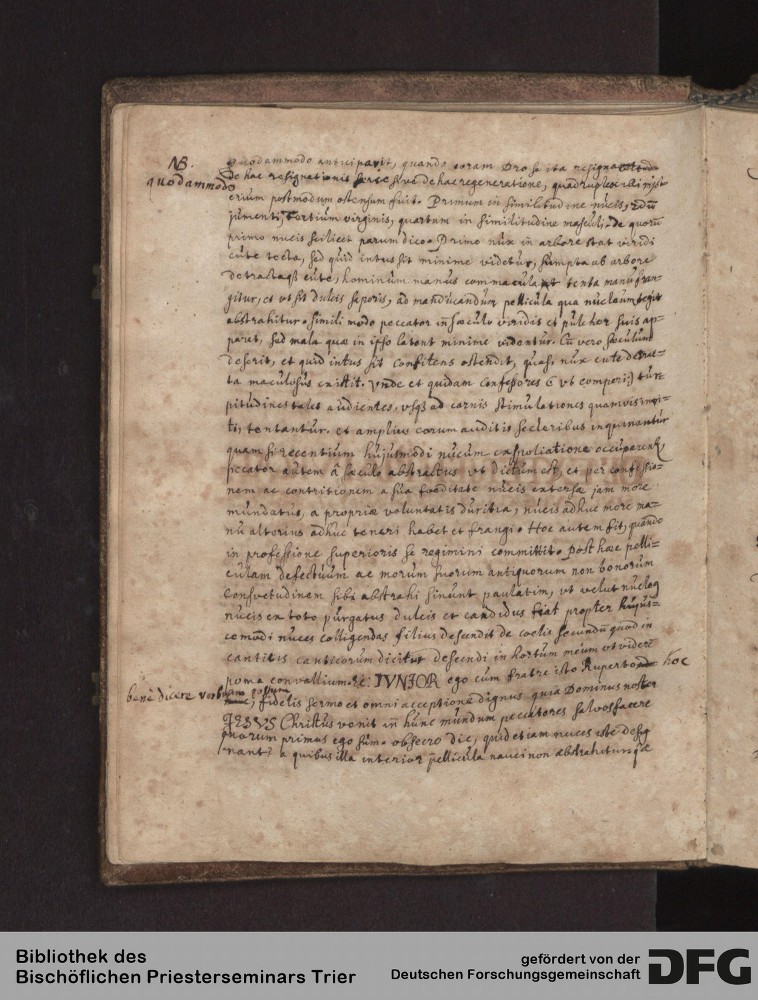 NB.
quodammodo
quodammodo anticipavit, quando coram Deo se ita resignavit
De hac resignationis sorte sive de hac regeneratione, quadruplex illi myst-
erium postmodum ostensum fuit. Primum in similitudine nucis, 2dū
jumenti, tertium virginis, quartum in similitudine masculi. de quorū
primo nucis scilicet parum dico. Primo nux in arbore stat viridi
cute tecta, sed quid intus sit minime videtur, sumpta ab arbore
detractaqз cute, hominum manus commaculat tenta manu fran-
gitur, et ut sit dulcis saporis, ad manducandum pellicula qua nucleum tegit
abstrahitur. simili modo peccator in sæculo viridis et pulcher suis ap-
paret, sed mala quæ in ipso latent minime videntur. Cū vero sæculum
deserit, et quid intus sit confitens ostendit, quasi nux cute detrac-
ta maculosus existit. vnde et quidam confessores tur-
pitudines tales audientes, usqз ad carnis stimulationes quamvis inui-
ti, tentantur. et amplius eorum auditis sceleribus inquinantur
quam si recentium hujusmodi nucum exspoliatione occuparentur
peccator autem â sæculo abstractus ut dictum est, et per confessio-
nem ac contritionem a sua fœditate nucis extersæ jam more
mundatus, a propriæ voluntatis duritia, nucis adhuc more ma-
nu alterius adhuc teneri habet et frangi. Hoc autem fit, quando
in professione superioris se regimini committit. post hæc pelli-
culam defectuum ac morum suorum antiquorum non bonorum
Consvetudinem sibi abstrahi sinunt paulatim, ut velut nucleus
nucis ex toto purgatus dulcis et candidus fiat propter hujus-
cemodi nuces colligendas filius descendit de coelis secundū quod in
canticis canticorum dicitur descendi in hortum meum ut viderē
poma convallium. &c: IVNIOR ego cum fratre isto Ruperto hoc
benè dicere possum, fidelis sermo et omni acceptione dignus quia Dominus noster
JESVS Christus venit in hunc mundum peccatores salvos facere
quorum primus ego sum. obsecro dic, quid etiam nuces istæ desig-
nant? a quibus illa interior pellicula nauci non abstrahitur. quæ
Bibliothek des
Bischöflichen Priesterseminars Trier
gefördert von der
Deutschen Forschungsgemeinschaft
DFG